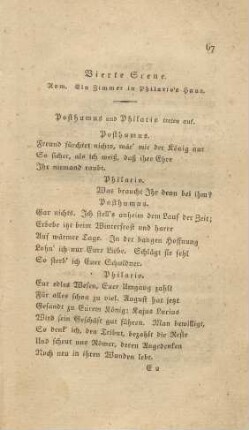 67
Vierte Scene.
Rom. Ein Zimmer in Philario's Haus.
Posthumus und Philario treten auf.
Posthumus.
Freund fürchtet nichts, wär' mir der König nur
So sicher, als ich weiß, daß ihre Ehre
Ihr niemand raubt.
Philario.
Was brauchts Ihr denn bei ihm?
Posthumus.
Gar nichts. Ich stell's anheim dem Lauf der Zeit;
Erbebe itzt beim Winterfrost und harre
Auf wärmre Tage. In der bangen Hoffnung
Lohn' ich nur Eure Liebe. Schlägt sie fehl
So sterb' ich Euer Schuldner.
Philario.
Eur edles Wesen, Euer Umgang zahlt
Für alles schon zu viel. August hat jetzt
Gesandt zu Eurem König: Kajus Lucius
Wird sein Geschäft gut führen. Man bewilligt,
So denk' ich, den Tribut, bezahlt die Reste
Und scheut uns Römer, deren Angedenken
Noch neu in ihren Wunden lebt.
E 2